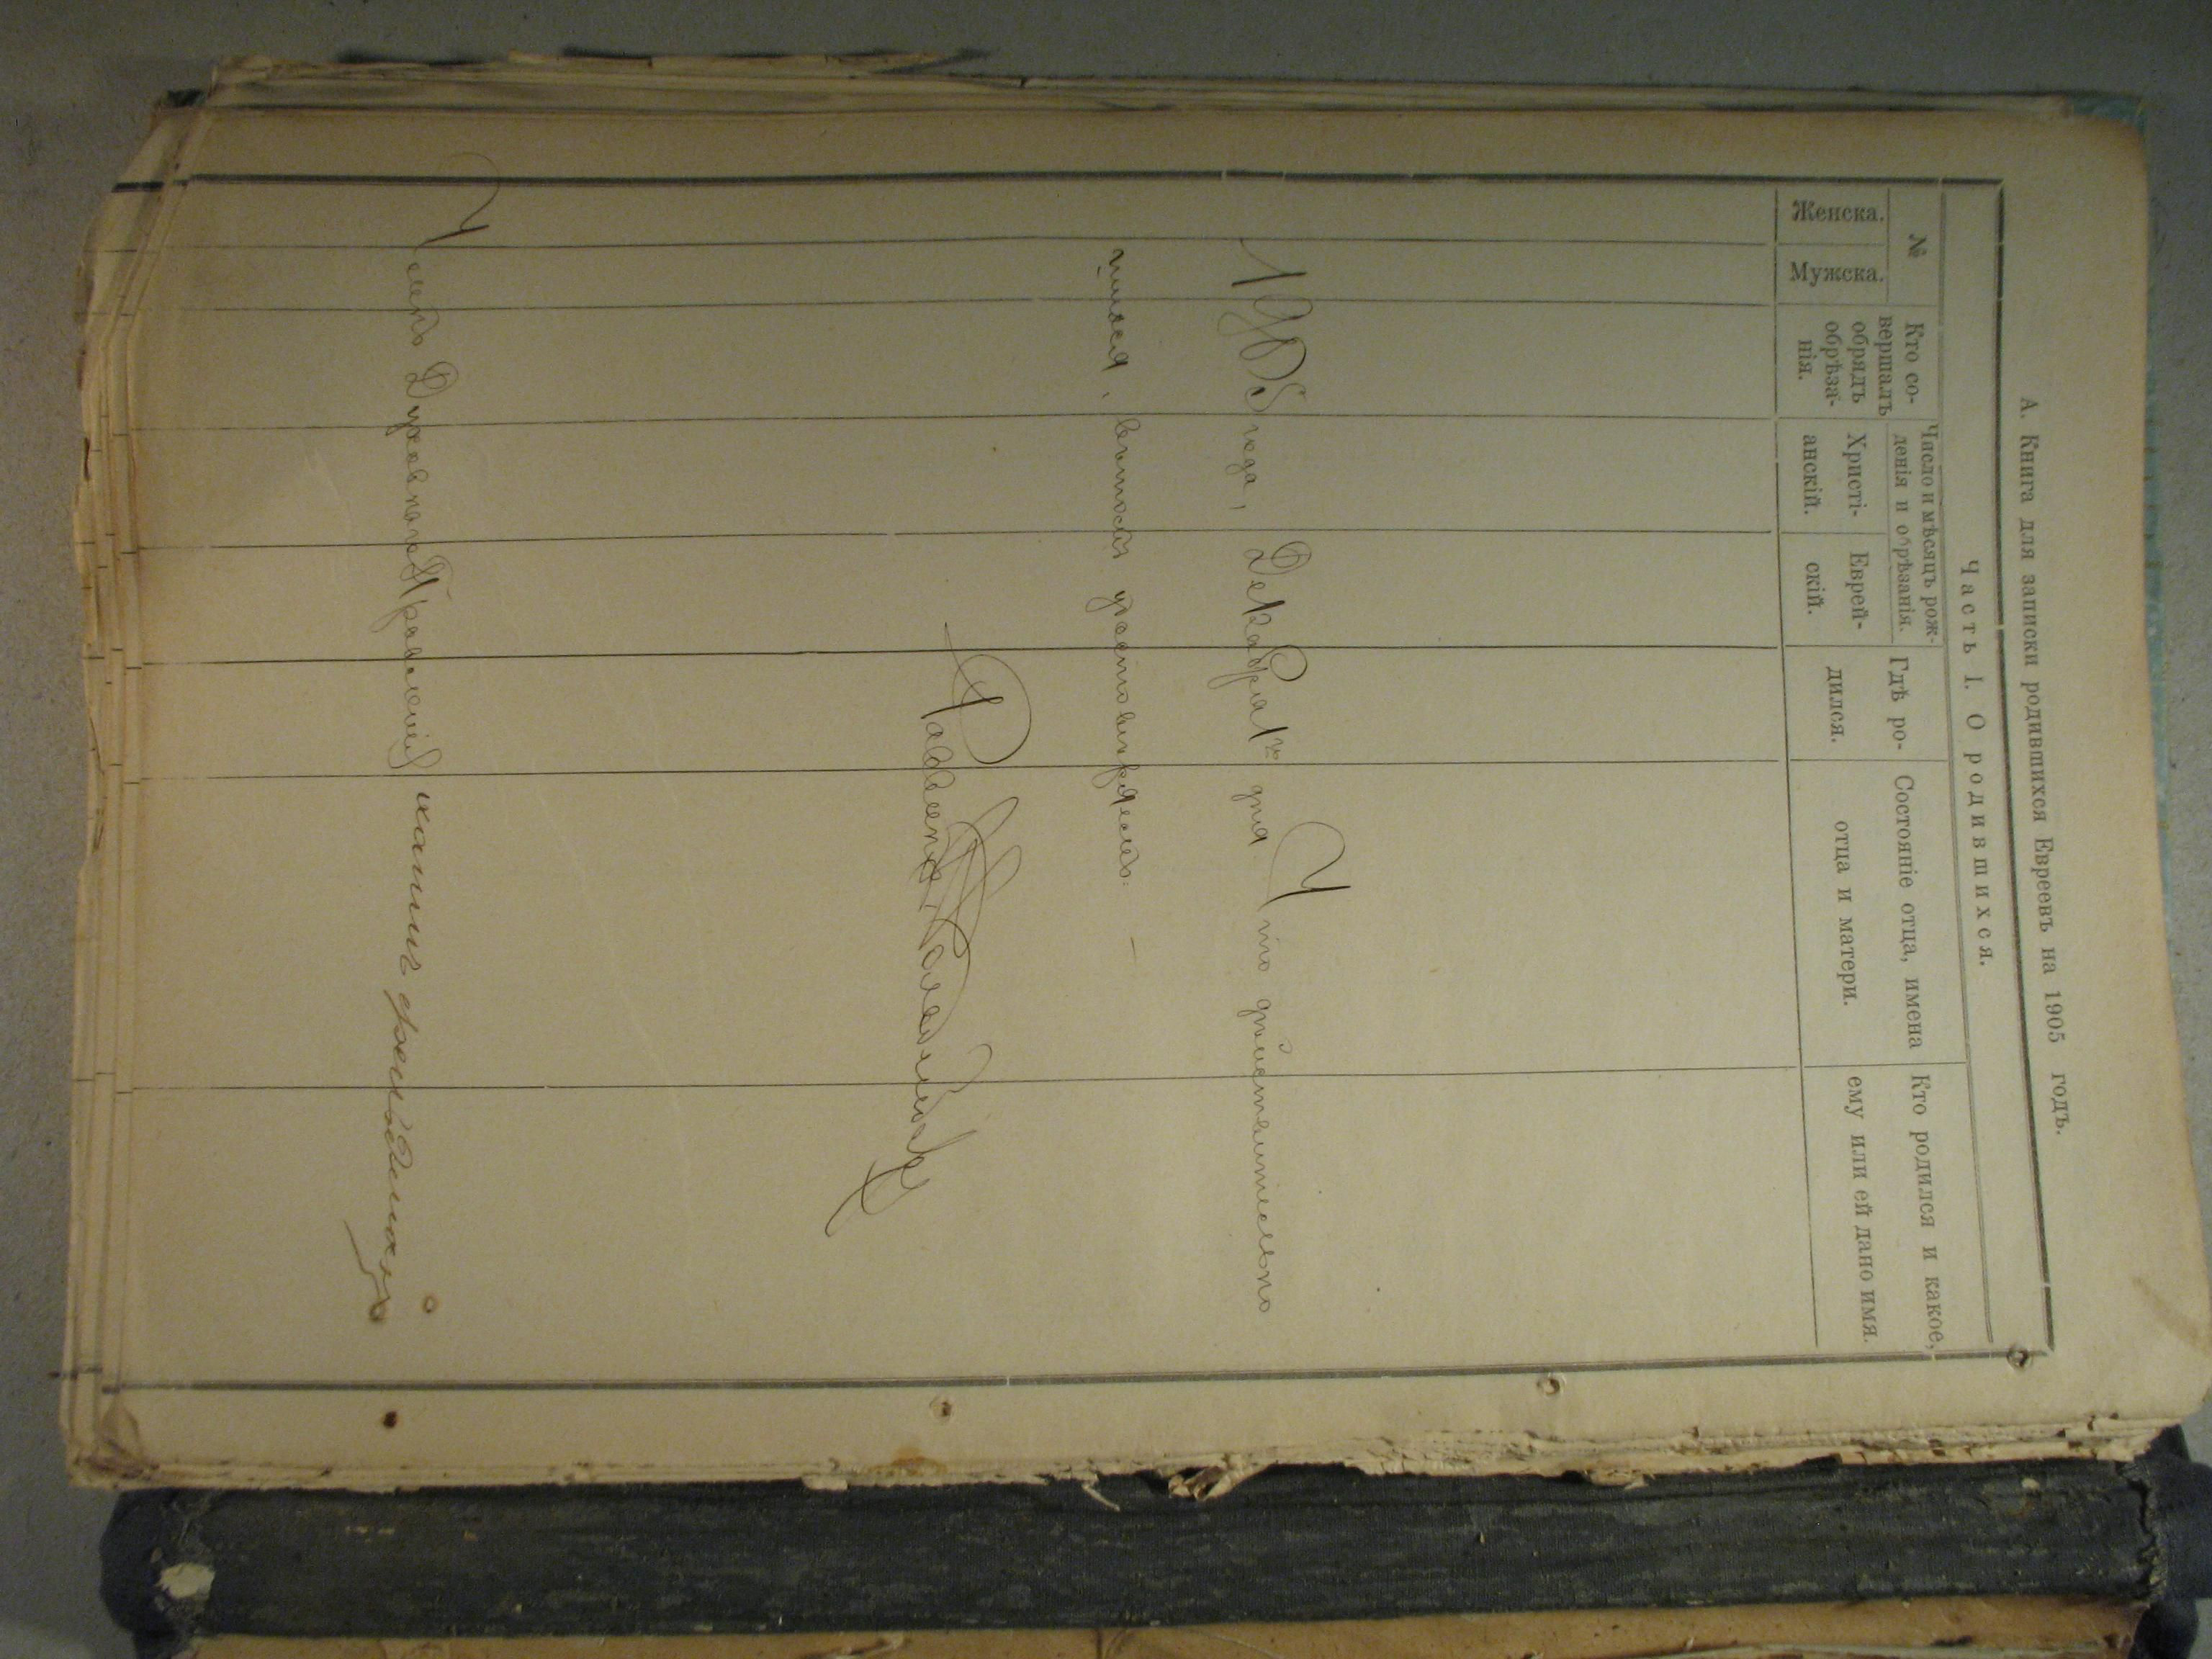 А. Книга для записки родившихся Евреевъ на 1905 годъ.
Часть I. О родившихся.
№
Женска.
Мужска.
Кто со-
вершалъ
обрядъ
обрѣза-
нія.
Число и мѣсяцъ рож-
денія и обрѣзанія.
Христі-
анскій.
Еврей-
скій.
Гдѣ ро-
дился.
Состояніе отца, имена
отца и матери.
Кто родился и какое,
ему или ей дано имя.
1905 года, Декабря 1го дня Что дѣйствительно
удостовѣряемъ. —
Раввинъ
Членъ Духовнаго Правленія